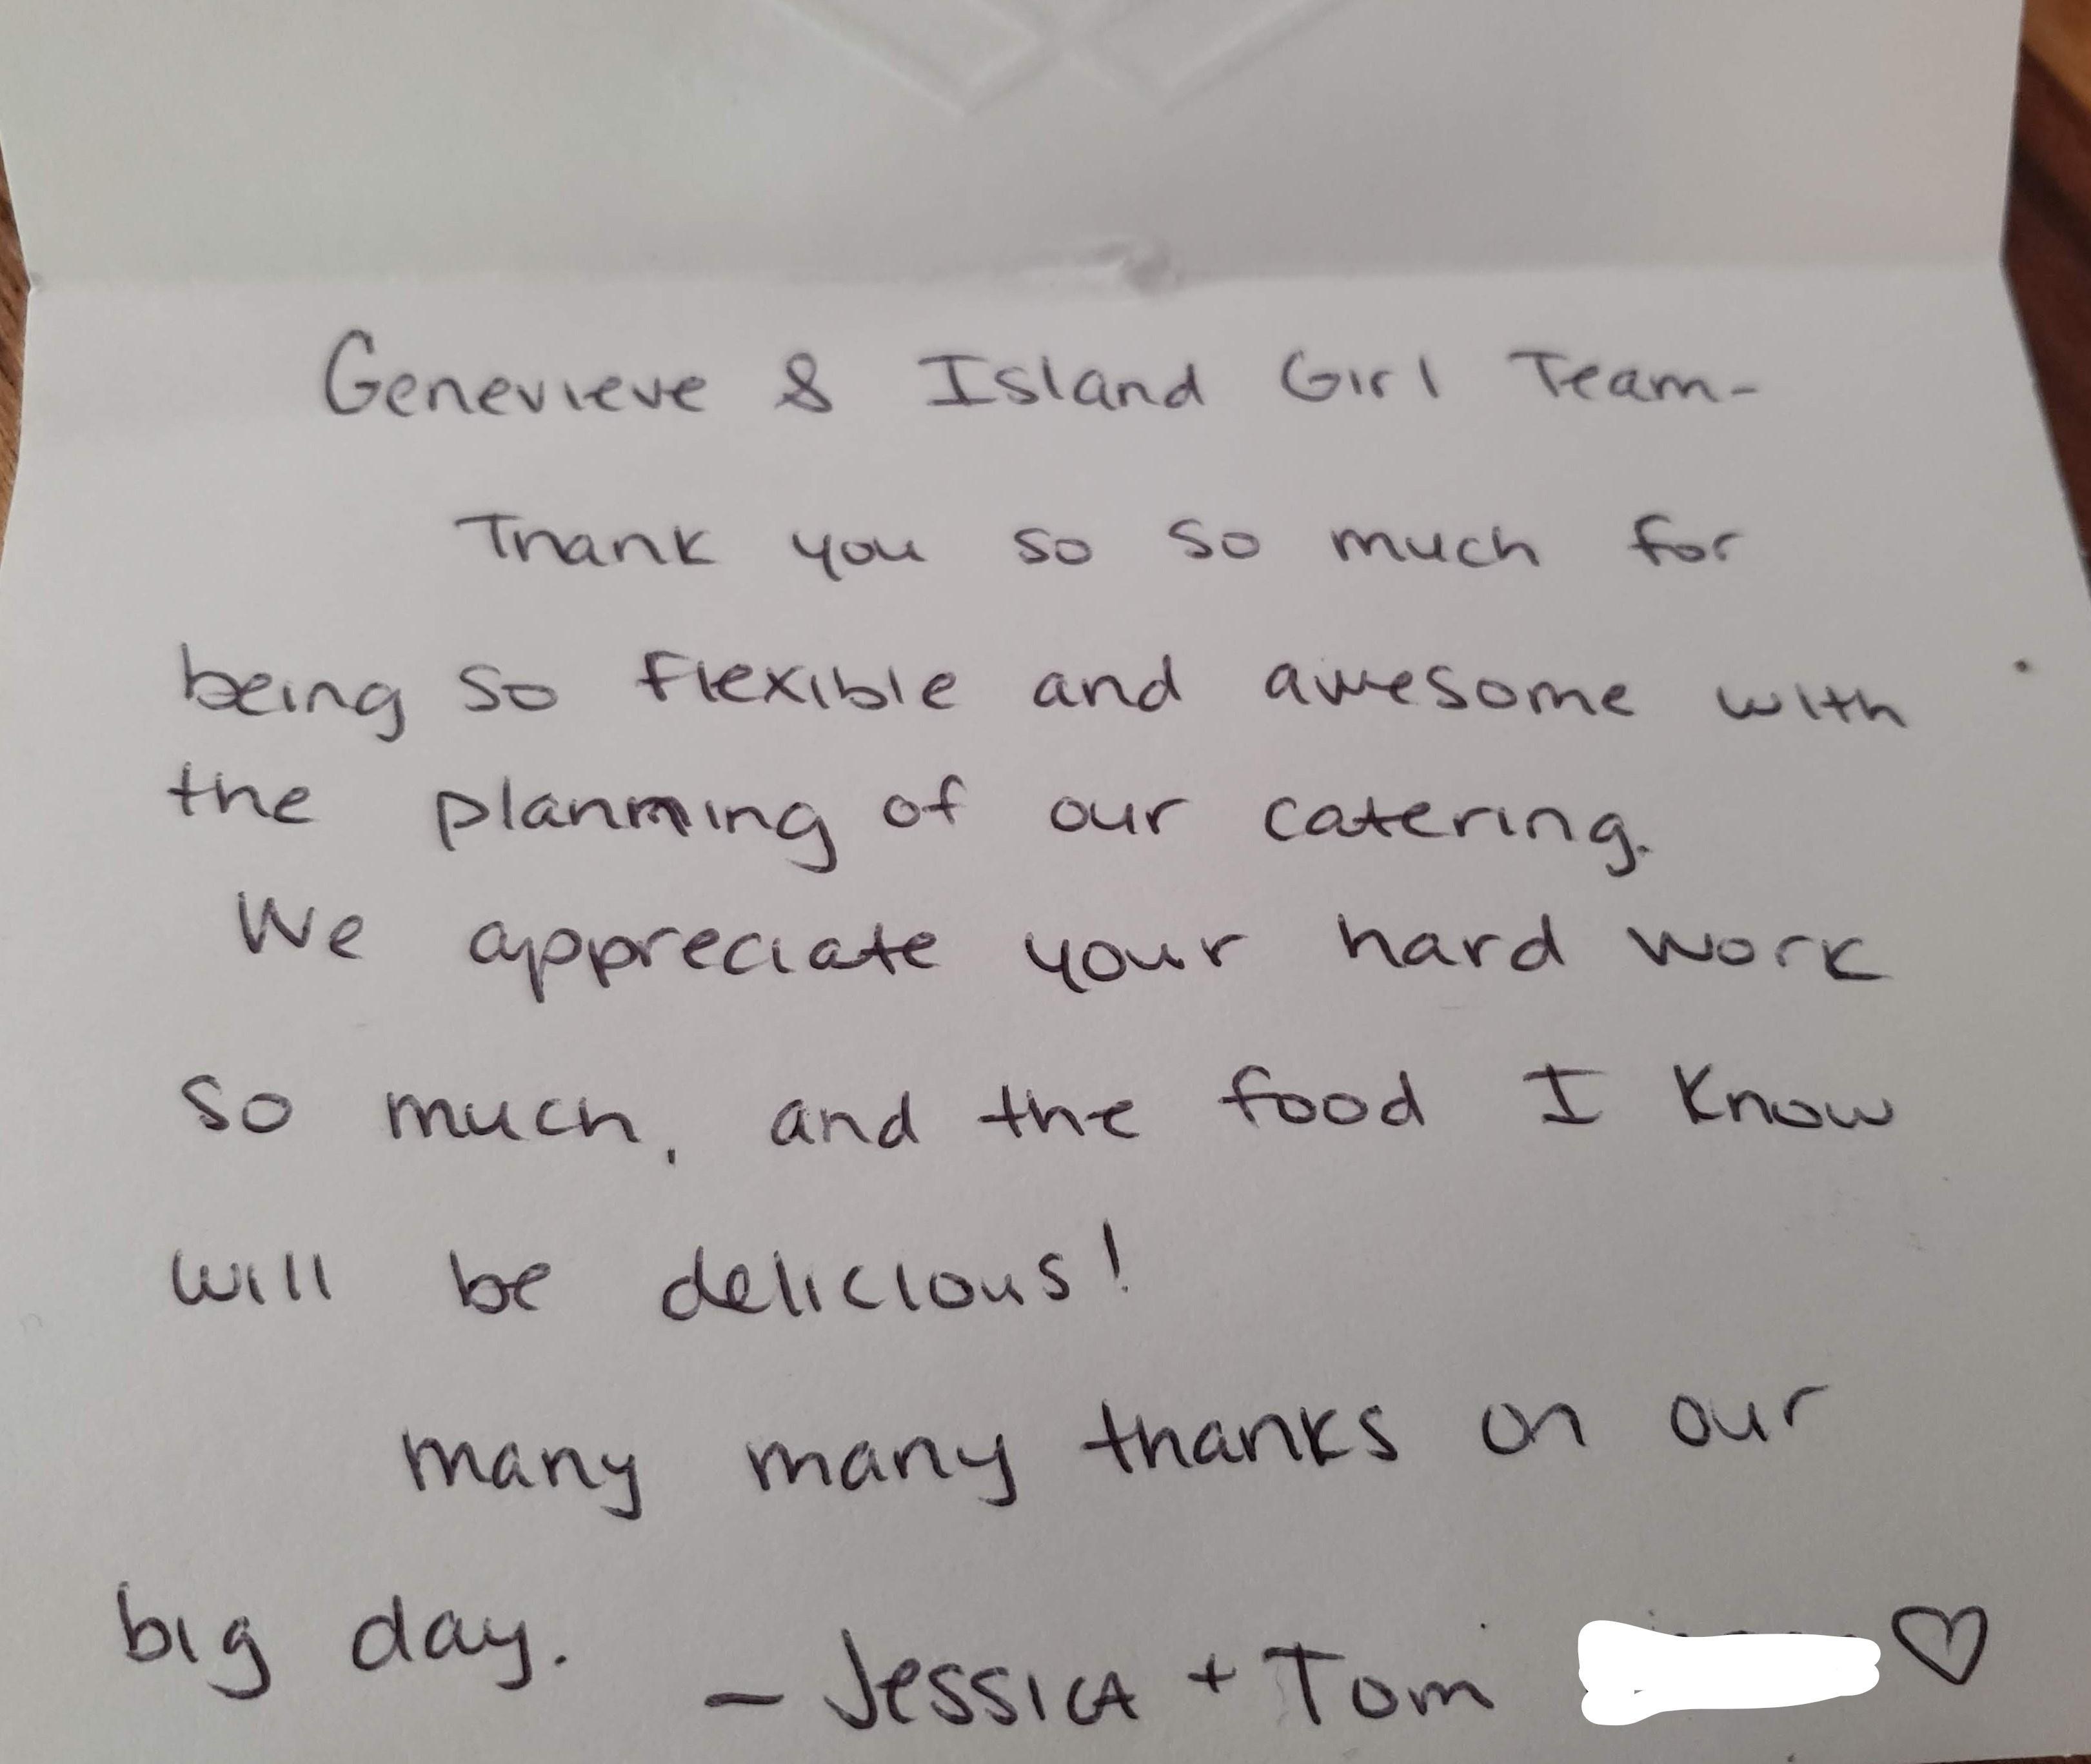 Genevieve & Island Girl Team-
Thank you so so much for
being so flexible and awesome with
the planning of our catering.
We appreciate your hard work
so much, and the food I know
will be delicious!
many many thanks on our
big day.
- Jessica + Tom ♡